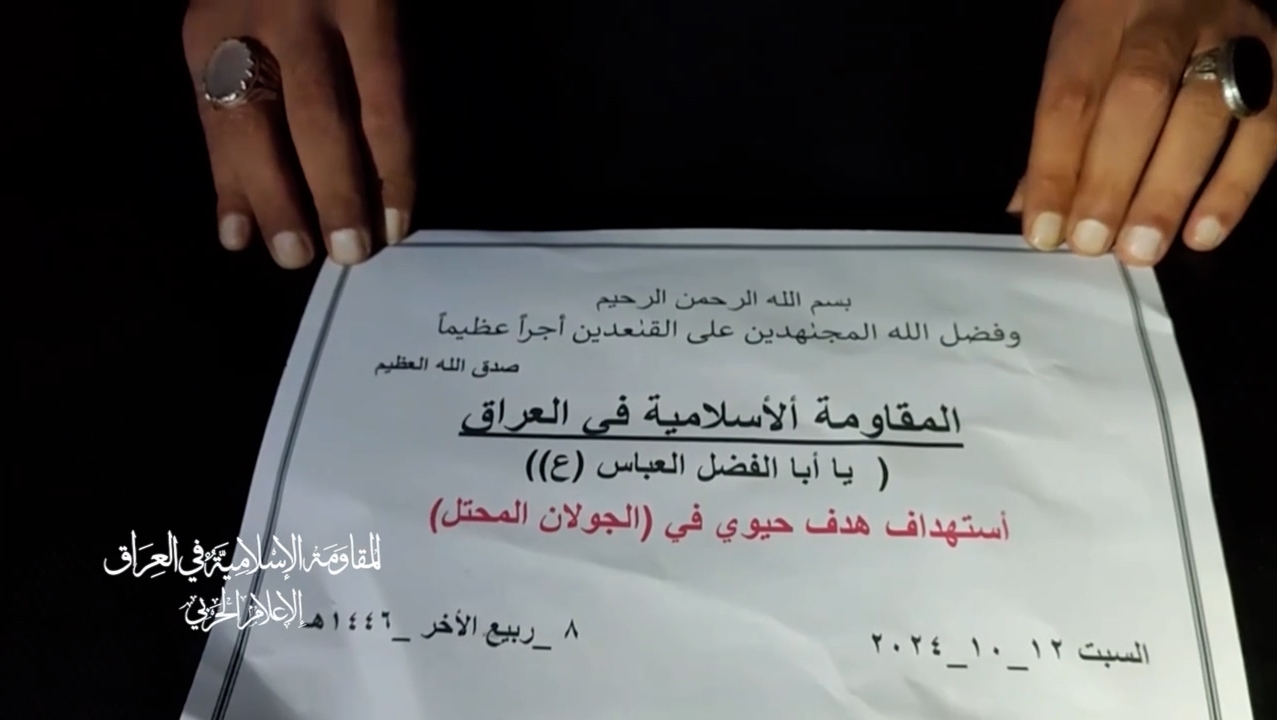 بسم الله الرحمن الرحيم
وفضل الله المجٰهدين على القٰعدين أجراً عظيماً
صدق الله العظيم
المقاومة ألأسلامية في العراق
( يا أبا الفضل العباس (ع))
أستهداف هدف حيوي في (الجولان المحتل)
السبت ١٢_١٠_٢٠٢٤
٨ _ربيع الأخر _١٤٤٦هـ
المقاومة الإسلامية في العراق
الإعلام الحربي